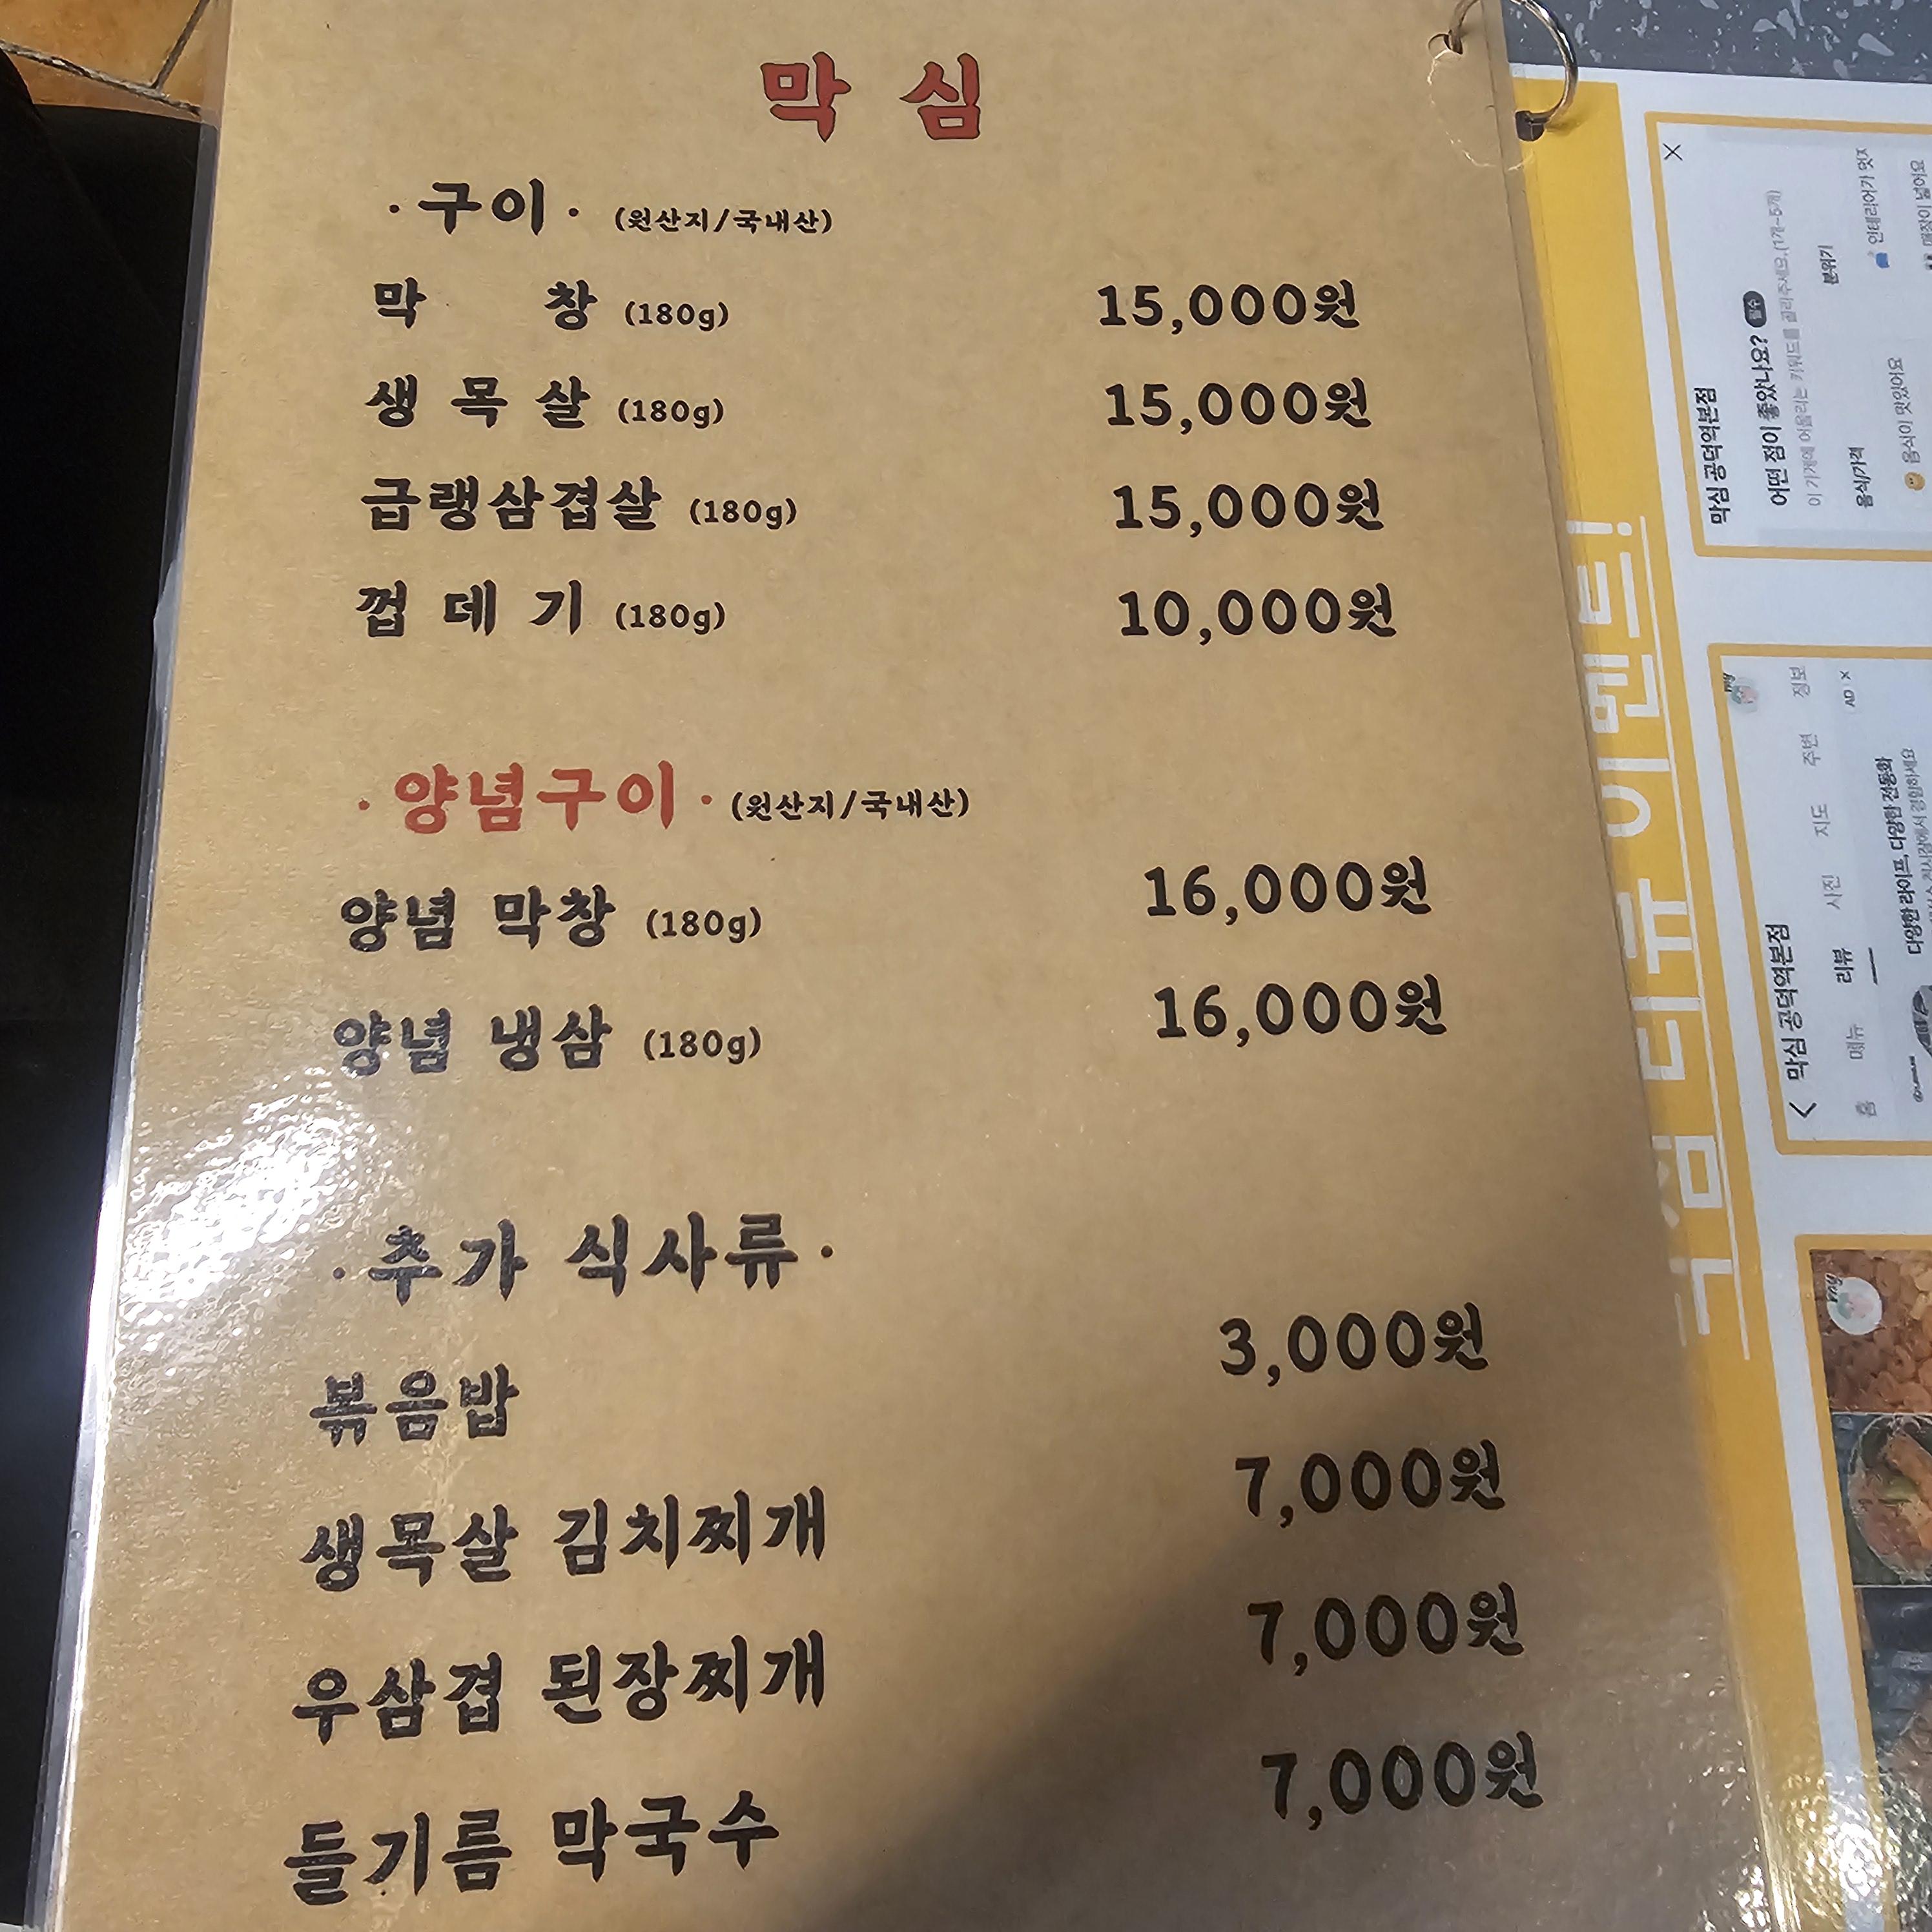 막심
·구이· (원산지/국내산)
막 창 (180g) 15,000원
생 목 살 (180g) 15,000원
급랭삼겹살 (180g) 15,000원
껍 데 기 (180g) 10,000원
·양념구이· (원산지/국내산)
양념 막창 (180g) 16,000원
양념 냉삼 (180g) 16,000원
·추가 식사류·
볶음밥 3,000원
생목살 김치찌개 7,000원
우삼겹 된장찌개 7,000원
들기름 막국수 7,000원
이벤트!
막심 공덕역본점
어떤 점이 좋았나요? 필수
이 가게에 어울리는 키워드를 골라주세요.(1개~5개)
음식/가격 분위기
음식이 맛있어요 인테리어가
매장이 넓어요
막심 공덕역본점
홈 메뉴 리뷰 사진 지도 주변 정보
다양한 라이프, 다양한 전동화
AD X
my
my